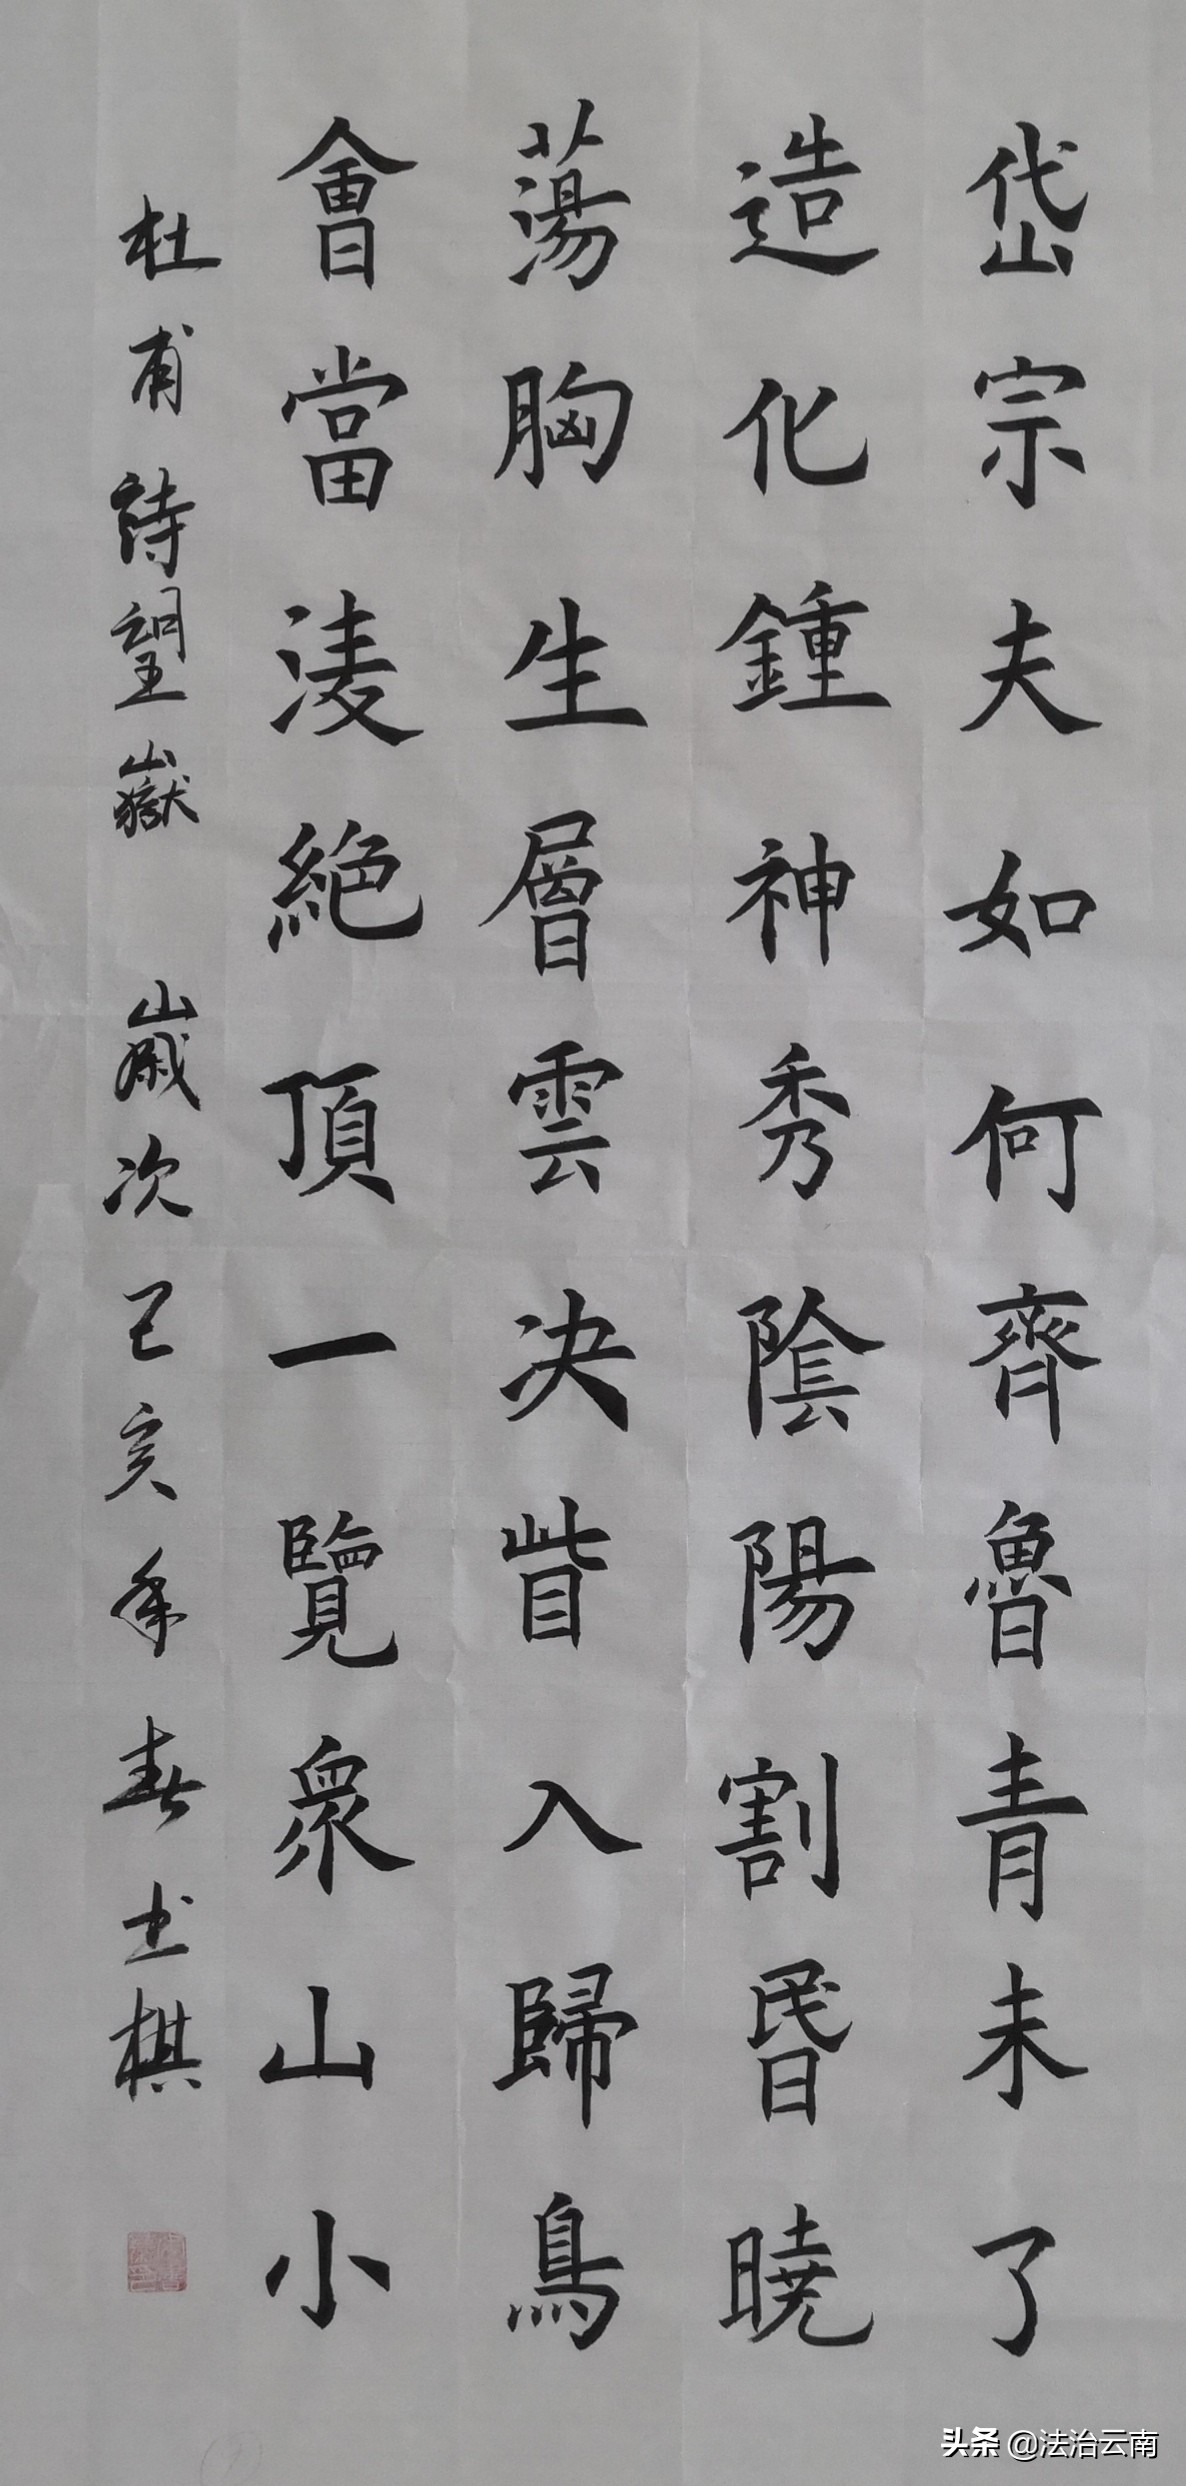 岱宗夫如何齊魯青未了
造化鍾神秀陰陽割昬曉
蕩胸生層雲決眥入歸鳥
會當淩絕頂一覽衆山小
杜甫詩望嶽 歲次己亥年春书棋
头条 @法治云南